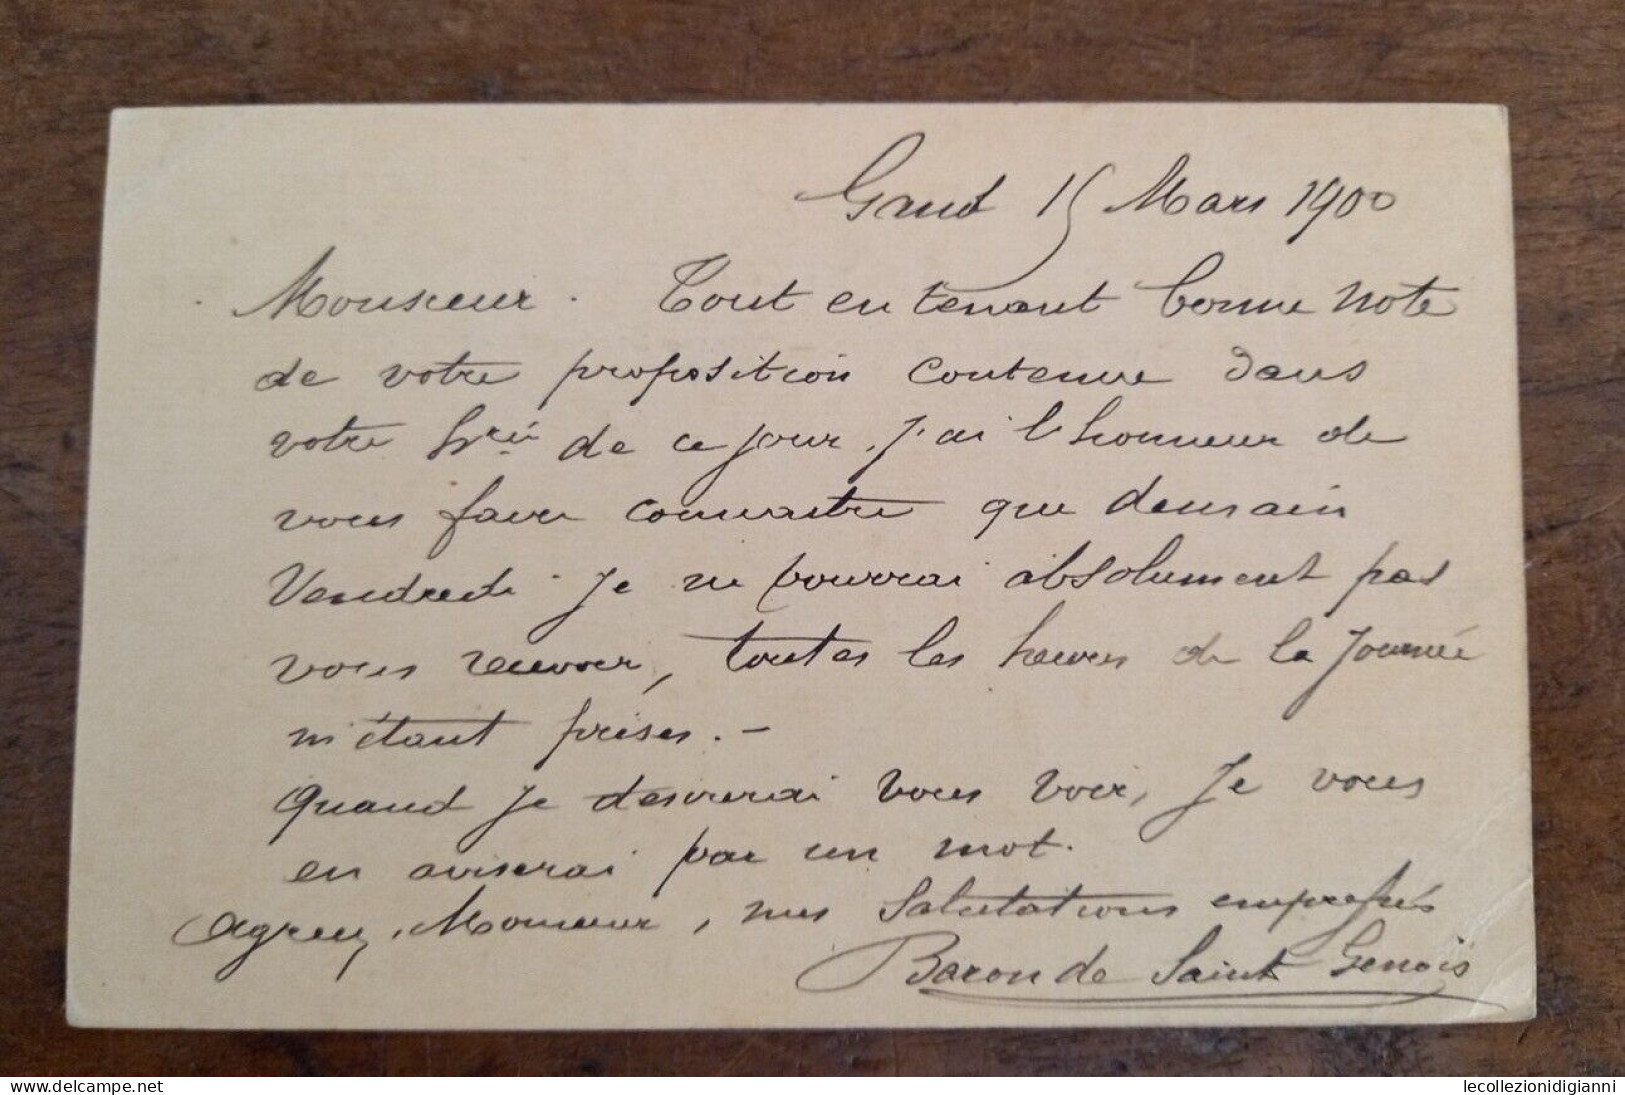 Gand 15 Mars 1900
Monsieur. Tout en tenant bonne note
de votre proposition contenue dans
votre de ce jour, j'ai l'honneur de
vous faire connaitre que demain
Vendredi je ne pourrai absolument pas
vous recevoir, toutes les heures de la journée
m'étant prises. -
Quand je desirerai vous voir, je vous
en aviserai par un mot.
Agreez, Monsieur, mes salutations empressées
Baron de Saint Genois
www.delcampe.net
lecollezionidigianni